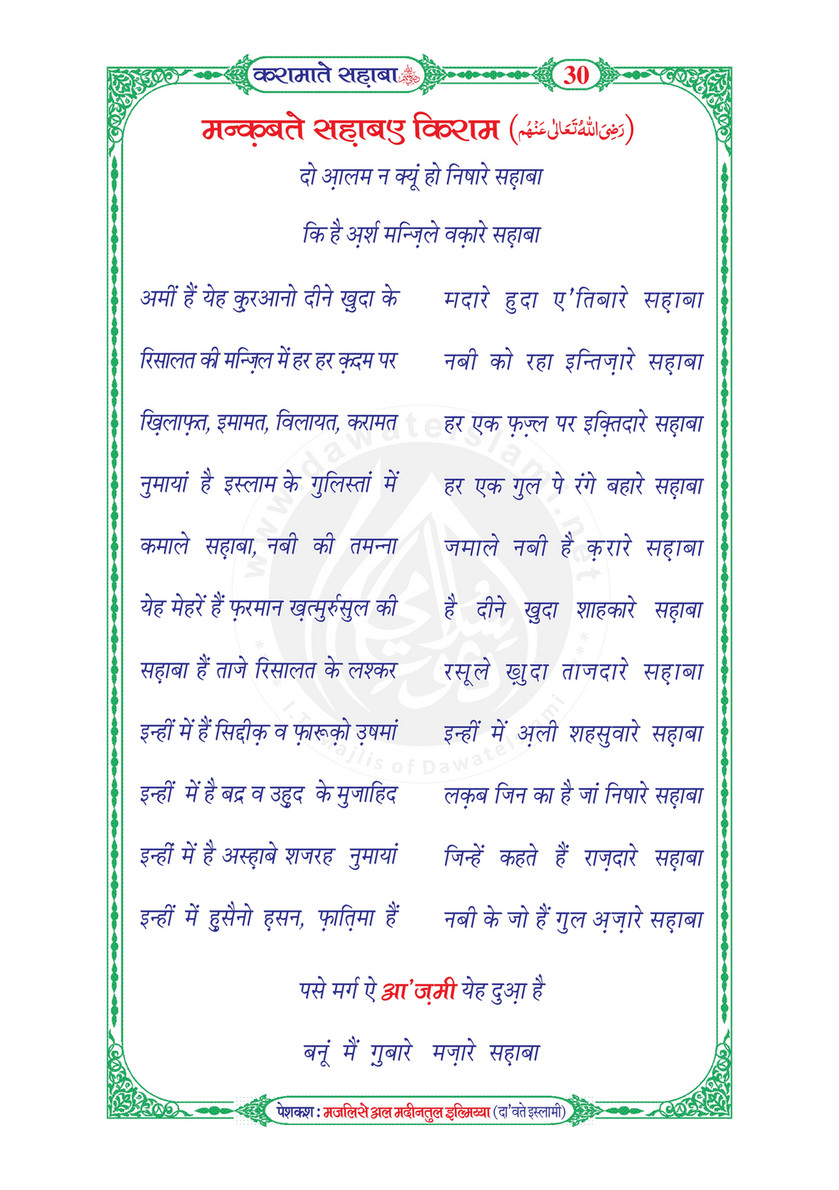 करामाते सह़ाबा
30
मन्क़बते सह़ाबए किराम (رَضِیَ اللّٰہُ تَعَالٰی عَنْہُم)
दो आ़लम न क्यूं हो निषारे सह़ाबा
कि है अ़र्श मन्ज़िले वक़ारे सह़ाबा
अमीं हैं येह कु़रआनो दीने खु़दा के मदारे हुदा ए'तिबारे सह़ाबा
रिसालत की मन्ज़िल में हर हर क़दम पर नबी को रहा इन्तिज़ारे सह़ाबा
खि़लाफ़त, इमामत, विलायत, करामत हर एक फ़ज़्ल पर इक़्तिदारे सह़ाबा
नुमायां है इस्लाम के गुलिस्तां में हर एक गुल पे रंगे बहारे सह़ाबा
कमाले सह़ाबा, नबी की तमन्ना जमाले नबी है क़रारे सह़ाबा
येह मेहरें हैं फ़रमान ख़त्मुर्रुसुल की है दीने खु़दा शाहकारे सह़ाबा
सह़ाबा हैं ताजे रिसालत के लश्कर रसूले खु़दा ताजदारे सह़ाबा
इन्हीं में हैं सिद्दीक़ व फ़ारूको उ़षमां इन्हीं में अ़ली शहसुवारे सह़ाबा
इन्हीं में है बद्र व उहु़द के मुजाहिद लक़ब जिन का है जां निषारे सह़ाबा
इन्हीं में है अस्ह़ाबे शजरह नुमायां जिन्हें कहते हैं राज़दारे सह़ाबा
इन्हीं में हु़सैनो ह़सन, फ़ाति़मा हैं नबी के जो हैं गुल अ़ज़ारे सह़ाबा
पसे मर्ग ऐ आ'ज़मी येह दुआ़ है
बनूं मैं गु़बारे मज़ारे सह़ाबा
www.dawateislami.net
I.T Majlis of DawateIslami
पेशकश : मजलिसे अल मदीनतुल इल्मिय्या (दा'वते इस्लामी)